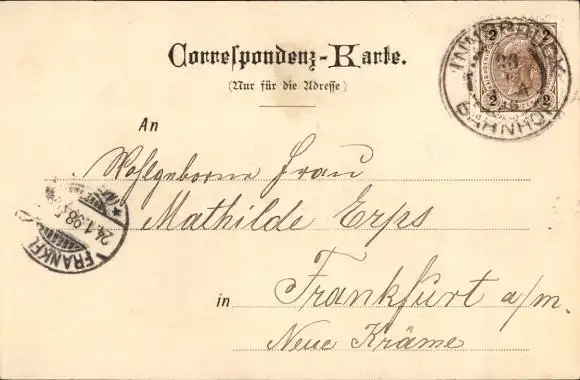 Correspondenz-Karte.
(Nur für die Adresse)
2 2
2 2
INNSBRUCK
BAHNHOF
An
Wohlgeborne Frau
Mathilde Erps
in Frankfurt a/m.
Neue Kräme
24.1.98
FRANKF